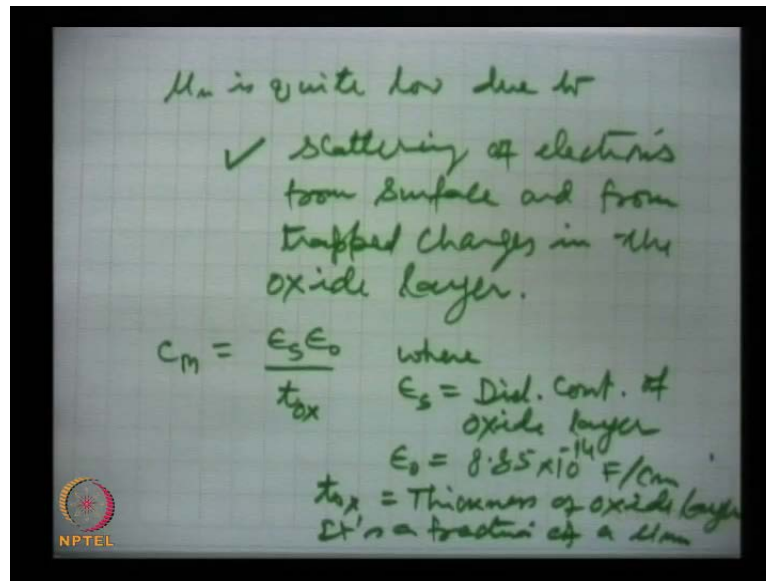 μn is quite low due to
✓ scattering of electrons
from surface and from
trapped charges in the
oxide layer.
Cm = ϵs ϵ0 / tox where
ϵs = Diel. Cont. of
oxide layer
ϵ0 = 8.85 x 10^-14 F/cm
tox = Thickness of oxide layer
It's a fraction of a μm
NPTEL